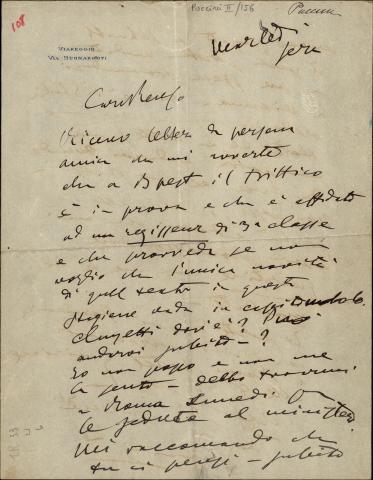 108
Puccini II/156
Puccini
VIAREGGIO
VIA BUONARROTI
martedì
sera
Caro Renzo
Ricevo lettera da persona
amica da cui
che a Bpest il trittico
è in prova e che è affidato
ad un regisseur di 3a classe
e che provveda se non
voglio che l'unica novità
di quel teatro in questa
stagione vada in
Clausetti dov'è?
andrai subito - ?
Io non posso e non me
la sento - debbo trovarmi
a Roma lunedì
le sedute al ministero
Mi raccomando che
tu ci pensi - subito